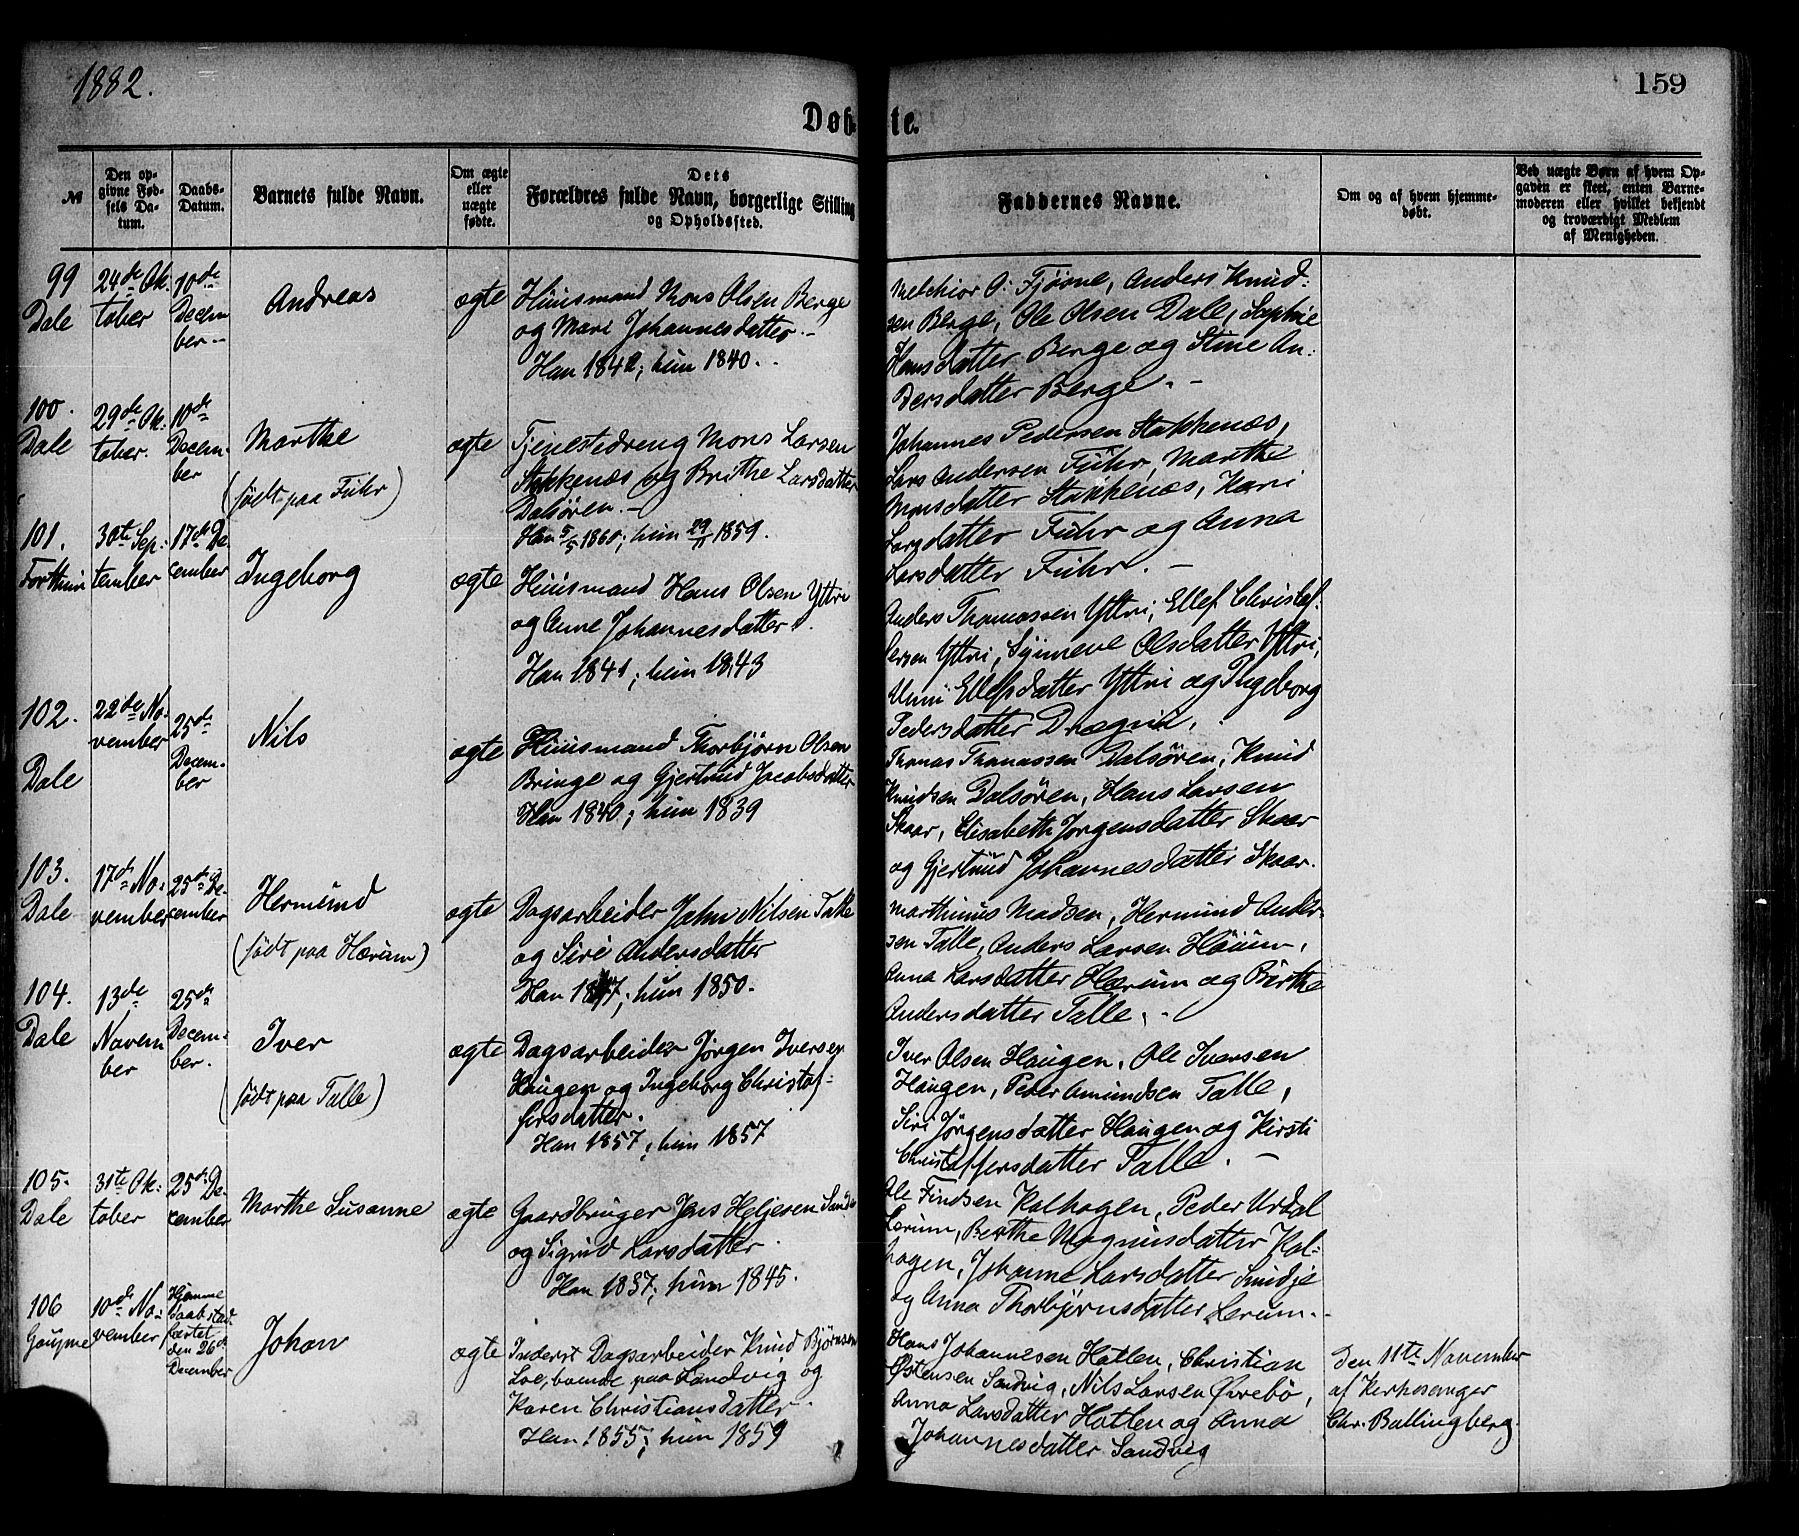 1882.
159
Døbte.
№
Den opgivne Fødsels Datum.
Daabs-Datum.
Barnets fulde Navn.
Om ægte eller uægte fødte.
Dets Forældres fulde Navn, borgerlige Stilling og Opholdssted.
Faddernes Navne.
Om og af hvem hjemmedøbt.
Ved uægte Børn af hvem Opgaven er skeet, enten Barnemoderen eller hvilket bekjendt og troværdigt Medlem af Menigheden.
99
Dale
24de Ok:
tober
10de
Decem
ber
Andreas
ægte
Huusmand Mons Olsen Berge
og Mari Johannesdatter
Han 1842; hun 1840.
Melchior O. Fjøsne, Anders Knud:
sen Berge, Ole Olsen Dale, Sophie
Hansdatter Berge og Stine An:
dersdatter Berge.
100.
Dale
29de Ok:
tober.
10de
Decem:
ber
Marthe
(født paa Fuhr)
ægte
Tjenestedreng Mons Larsen
Stokkenæs og Brithe Larsdatter
Dalsøren.
Han 5/5 1860; hun 29/11 1859.
Johannes Pedersen Stokkenæs,
Lars Andersen Fuhr, Marthe
Monsdatter Stokkenæs, Kari
Larsdatter Fuhr og Anna
Larsdatter Fuhr.
101.
Forthun
30te Sep:
tember
17de De-
cember
Ingeborg
ægte
Huusmand Hans Olsen Yttri
og Anne Johannesdatter.
Han 1841; hun 1843
Anders Thomassen Yttri, Ellef Christof:
fersen Yttri, Synneve Olsdatter Yttri,
Unni Ellefsdatter Yttri og Ingeborg
Pedersdatter Drægni.
102.
Dale
22de No-
vember
25de
Decem-
ber
Nils
ægte
Huusmand Thorbjørn Olsen
Bringe og Gjertrud Jacobsdatter
Han 1840; hun 1839
Thomas Thomassen Dalsøren, Knud
Knudsen Dalsøren, Hans Larsen
Skaar, Elisabeth Jørgensdatter Skaar
og Gjertrud Johannesdatter Skaar.
103.
Dale
17de No:
vember
25de De-
cember
Hermund
(født paa Hærum)
ægte
Dagsarbeider John Nilsen Talle
og Siri Andersdatter
Han 1847; hun 1850.
Marthinus Madsen, Hermund Ander-
sen Talle, Anders Larsen Høium,
Anna Larsdatter Hærum og Birthe
Andersdatter Talle.
104.
Dale
13de
Novem
ber
25de
Decem-
ber.
Iver
(født paa Talle)
ægte
Dagsarbeider Jørgen Iversen
Haugen og Ingeborg Christof-
fersdatter.
Han 1857; hun 1857
Iver Olsen Haugen, Ole Iversen
Haugen, Peder Amundsen Talle,
Siri Jørgensdatter Haugen og Kirsti
Christoffersdatter Talle.
105.
Dale
31te Ok:
tober
25de De-
cember
Marthe Susanne
ægte
Gaardbruger Jens Heljesen
og Sigrid Larsdatter.
Han 1837; hun 1845.
Ole Findsen Kalhagen, Peder Urdal
Lerum, Berthe Magnusdatter Kal-
hagen, Johanne Larsdatter Smidje
og Anna Thorbjørnsdatter Lerum.
106
Gaupne
10de No:
vember
Hjemme
daab stad-
fæstet
den 26de
December
Johan
ægte
Inderst Dagsarbeider Knud Bjørnsen
Loe, boende paa Sandvig og
Karen Christiansdatter.
Han 1855; hun 1859
Hans Johannesen Hatlen, Christian
Østensen Sandvig, Nils Larsen Øvrebø,
Anna Larsdatter Hatlen og Anna
Johannesdatter Sandvig
den 11te November
af Kirkesanger
Chr. Ballingberg.